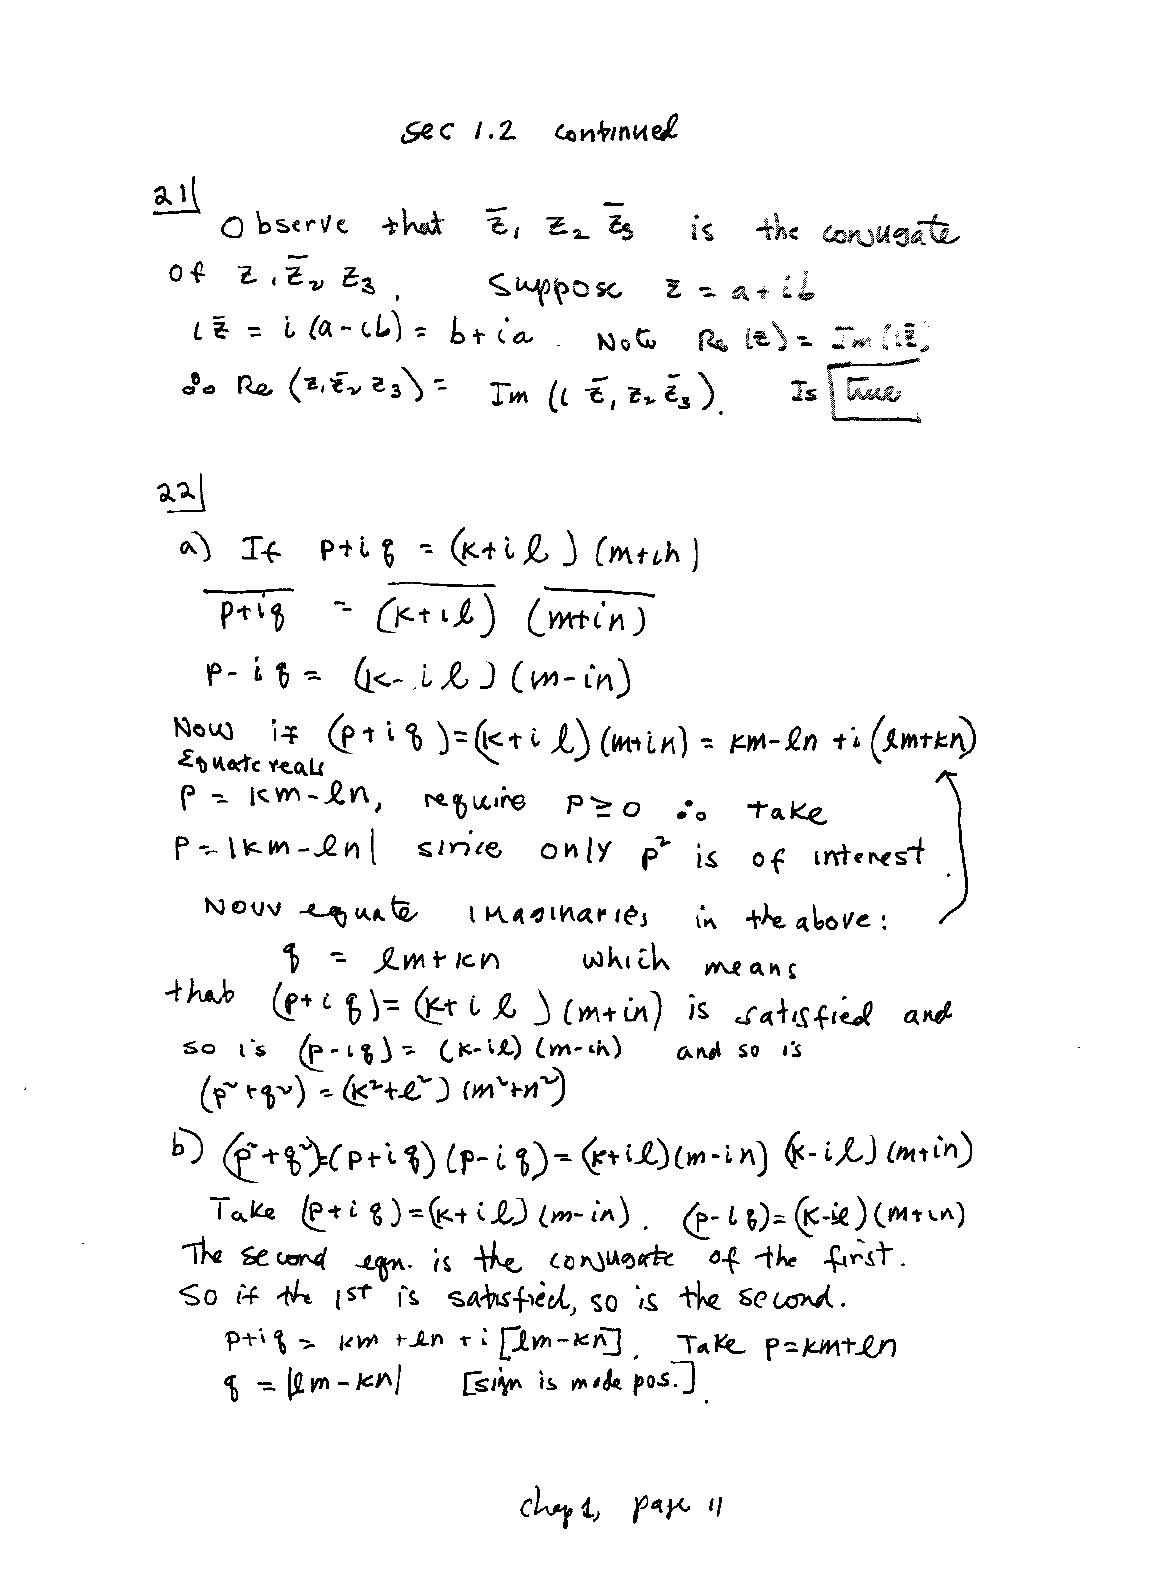 sec 1.2 continued
21|
Observe that z̄₁ z₂ z̄₃ is the conjugate
of z₁ z̄₂ z₃. Suppose z = a+ib
i z̄ = i(a-ib) = b+ia. Note Re(z) = Im(i z̄)
∴ Re(z₁ z̄₂ z₃) = Im(i z̄₁ z₂ z̄₃). Is True
22|
a) If p+iq = (k+il)(m+in)
p+iq = (k+il) (m+in)
p-iq = (k-il)(m-in)
Now if (p+iq) = (k+il)(m+in) = km-ln +i(lm+kn)
Equate reals
p = km-ln, require p≥0 ∴ take
p = |km-ln| since only p² is of interest.
Now equate imaginaries in the above:
q = lm+kn which means
that (p+iq) = (k+il)(m+in) is satisfied and
so is (p-iq) = (k-il)(m-in) and so is
(p²+q²) = (k²+l²)(m²+n²)
b) (p²+q²)=(p+iq)(p-iq) = (k+il)(m-in)(k-il)(m+in)
Take (p+iq) = (k+il)(m-in). (p-iq) = (k-il)(m+in)
The second eqn. is the conjugate of the first.
So if the 1st is satisfied, so is the second.
p+iq = km +ln +i[lm-kn]. Take p=km+ln
q = |lm-kn| [sign is made pos.].
chap 1, page 11